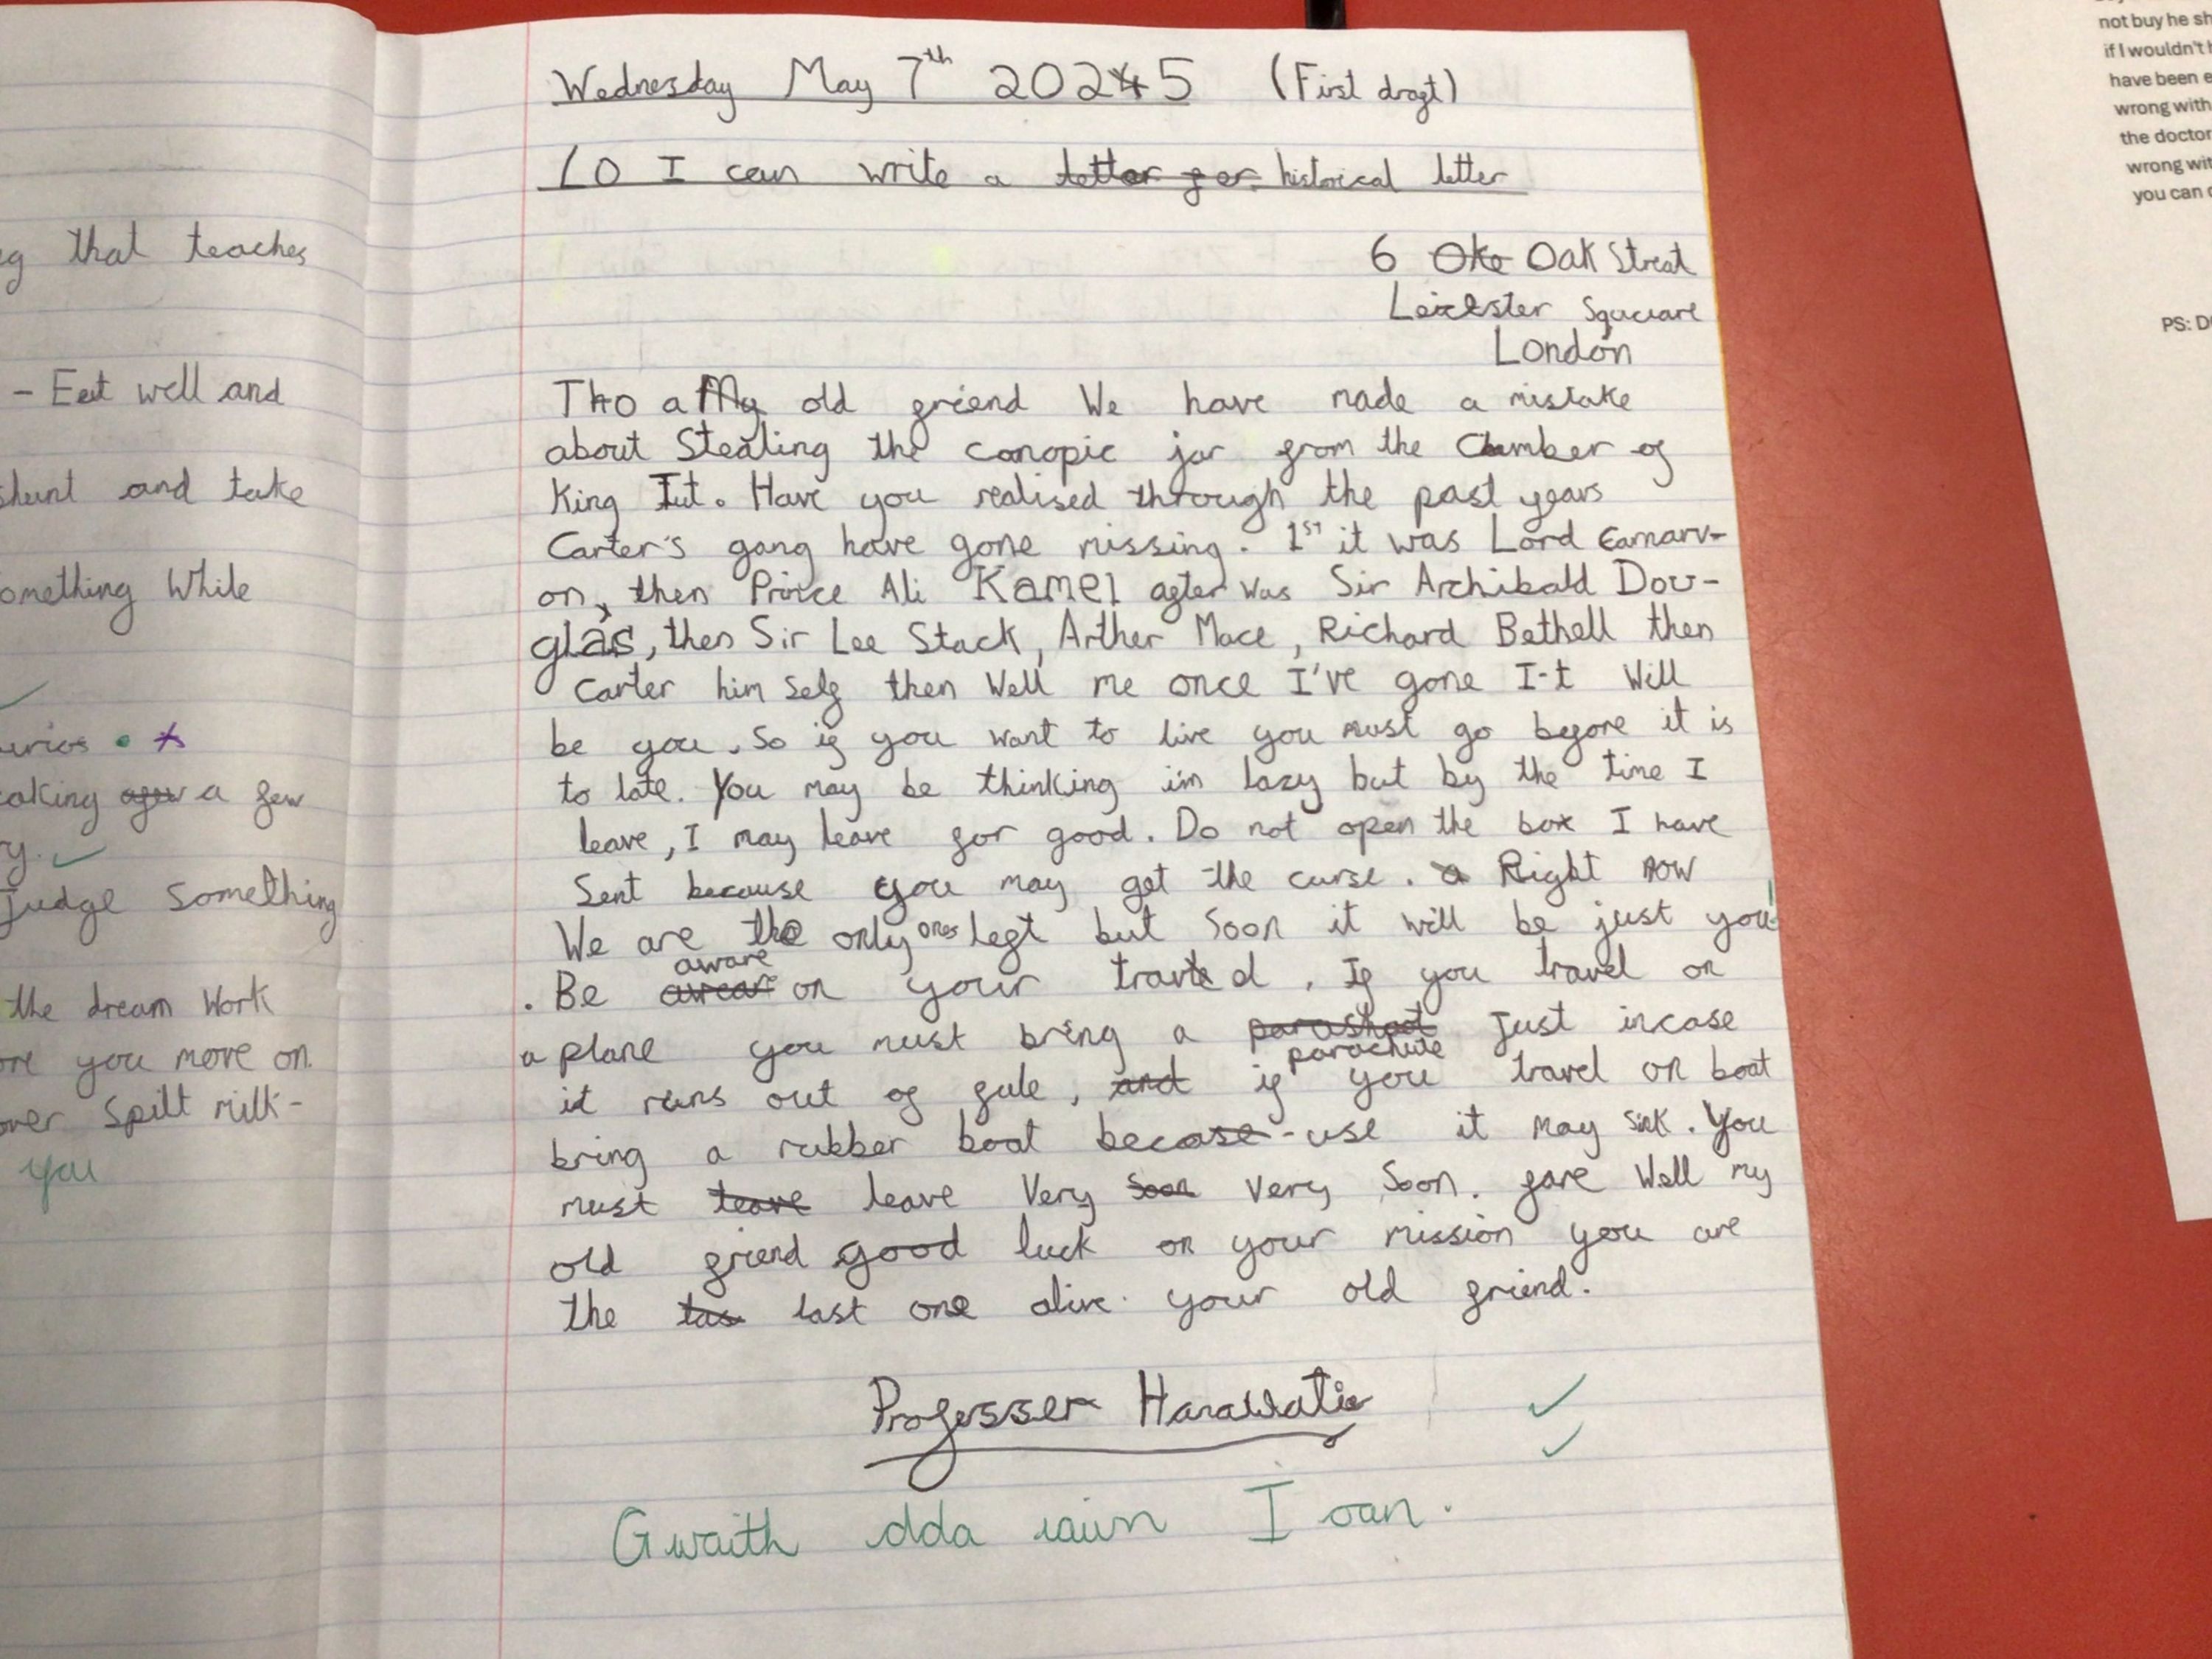 eg that teaches
- Eat well and
and take
omething While
a few
ry.
Judge something
the dream Work
ore you move on.
over spilt milk-
you
Wednesday May 7th 20245 (First draft)
LO I can write a letter for historical letter
6 Oke Oak Streat
Leickster Sqauare
London
My old friend We have made a mistake
about Stealing the canopic jar from the Chamber of
King Tut. Have you realised through the past years
Carter's gang have gone missing. 1st it was Lord Carnarv-
on, then Prince Ali Kamel after was Sir Archibald Dou-
glas, then Sir Lee Stack, Arther Mace, Richard Bethell then
Carter him self then Well me once I've gone I-t Will
be you. So if you want to live you must go before it is
to late. You may be thinking i'm lazy but by the time I
leave, I may leave for good. Do not open the box I have
Sent because you may get the curse. Right now
We are the only ones left but Soon it will be just you
. Be aware on your traveld. If you travel on
a plane you must bring a parashoot parachute Just incase
it runs out of fule, and if you travel on boat
bring a rubber boat becase-use it may sink. You
must leave leave Very Soon Very Soon. fare Well my
old friend good luck on your mission you are
the las last one alive. your old friend.
Professer Hanawatie
Gwaith dda iawn Ioan.
not buy he sh
if I wouldn't h
have been e
wrong with
the doctor
wrong wit
you can
PS: D